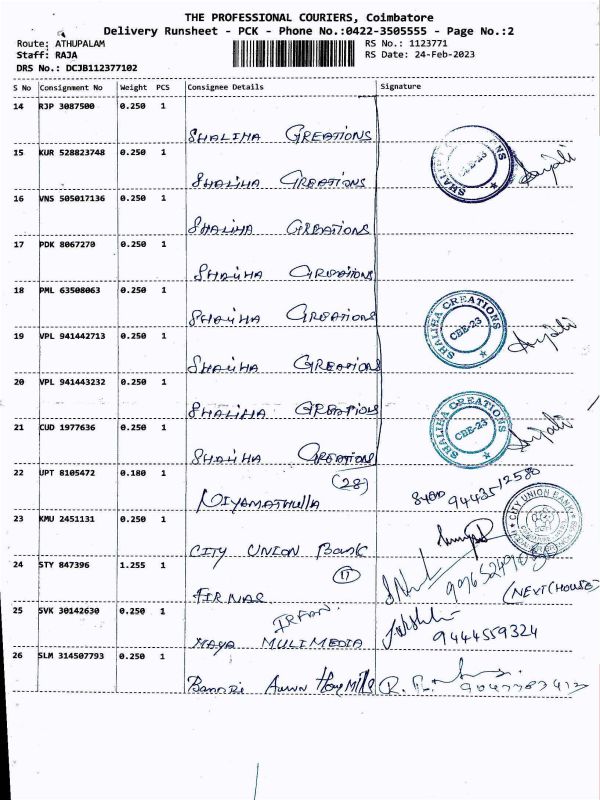 THE PROFESSIONAL COURIERS, Coimbatore
Delivery Runsheet - PCK - Phone No.:0422-3505555 - Page No.:2
Route: ATHUPALAM RS No.: 1123771
Staff: RAJA RS Date: 24-Feb-2023
DRS No.: DCJB112377102
S No Consignment No Weight PCS Consignee Details Signature
14 RJP 3087500 0.250 1
SHALIHA CREATIONS
15 KUR 528823748 0.250 1
SHALIHA CREATIONS
SHALIHA CREATIONS CBE-23
16 VNS 505017136 0.250 1
SHALIHA CREATIONS
17 PDK 8067270 0.250 1
SHALIHA CREATIONS
18 PML 63508063 0.250 1
SHALIHA CREATIONS
SHALIHA CREATIONS CBE-23
19 VPL 941442713 0.250 1
SHALIHA CREATIONS
20 VPL 941443232 0.250 1
SHALIHA CREATIONS
21 CUD 1977636 0.250 1
SHALIHA CREATIONS
SHALIHA CREATIONS CBE-23
22 UPT 8105472 0.180 1
(28)
NIYAMATHULLA
23 KMU 2451131 0.250 1
CITY UNION BANK
CITY UNION BANK
24 STY 847396 1.255 1
11
FIRNAS
(NEXT HOUSE)
25 SVK 30142630 0.250 1
IRFAN.
MAYA MULIMEDIA
9444559324
26 SLM 314507793 0.250 1